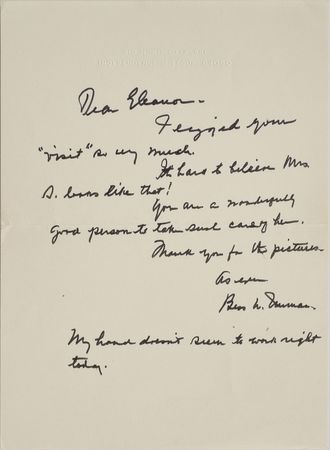 Dear Eleanor -
I enjoyed your
"visit" so very much.
It's hard to believe Mrs.
S. looks like that!
You are a wonderfully
good person to take such care of her.
Thank you for the pictures.
As ever
Bess W. Truman.
My hand doesn't seem to work right
today.